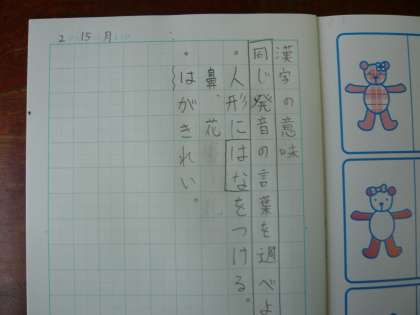 2 15 月
漢字の意味
同じ発音の言葉を選べよ
。人形にはなをつける。
鼻、花
。はがきれい。